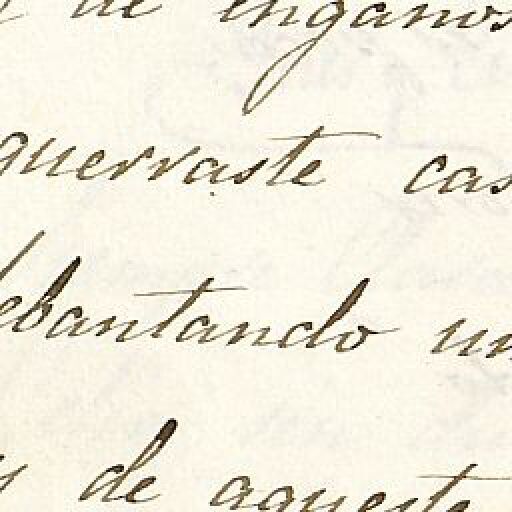 de enganos
guerraste cas
lebantando un
de aqueste